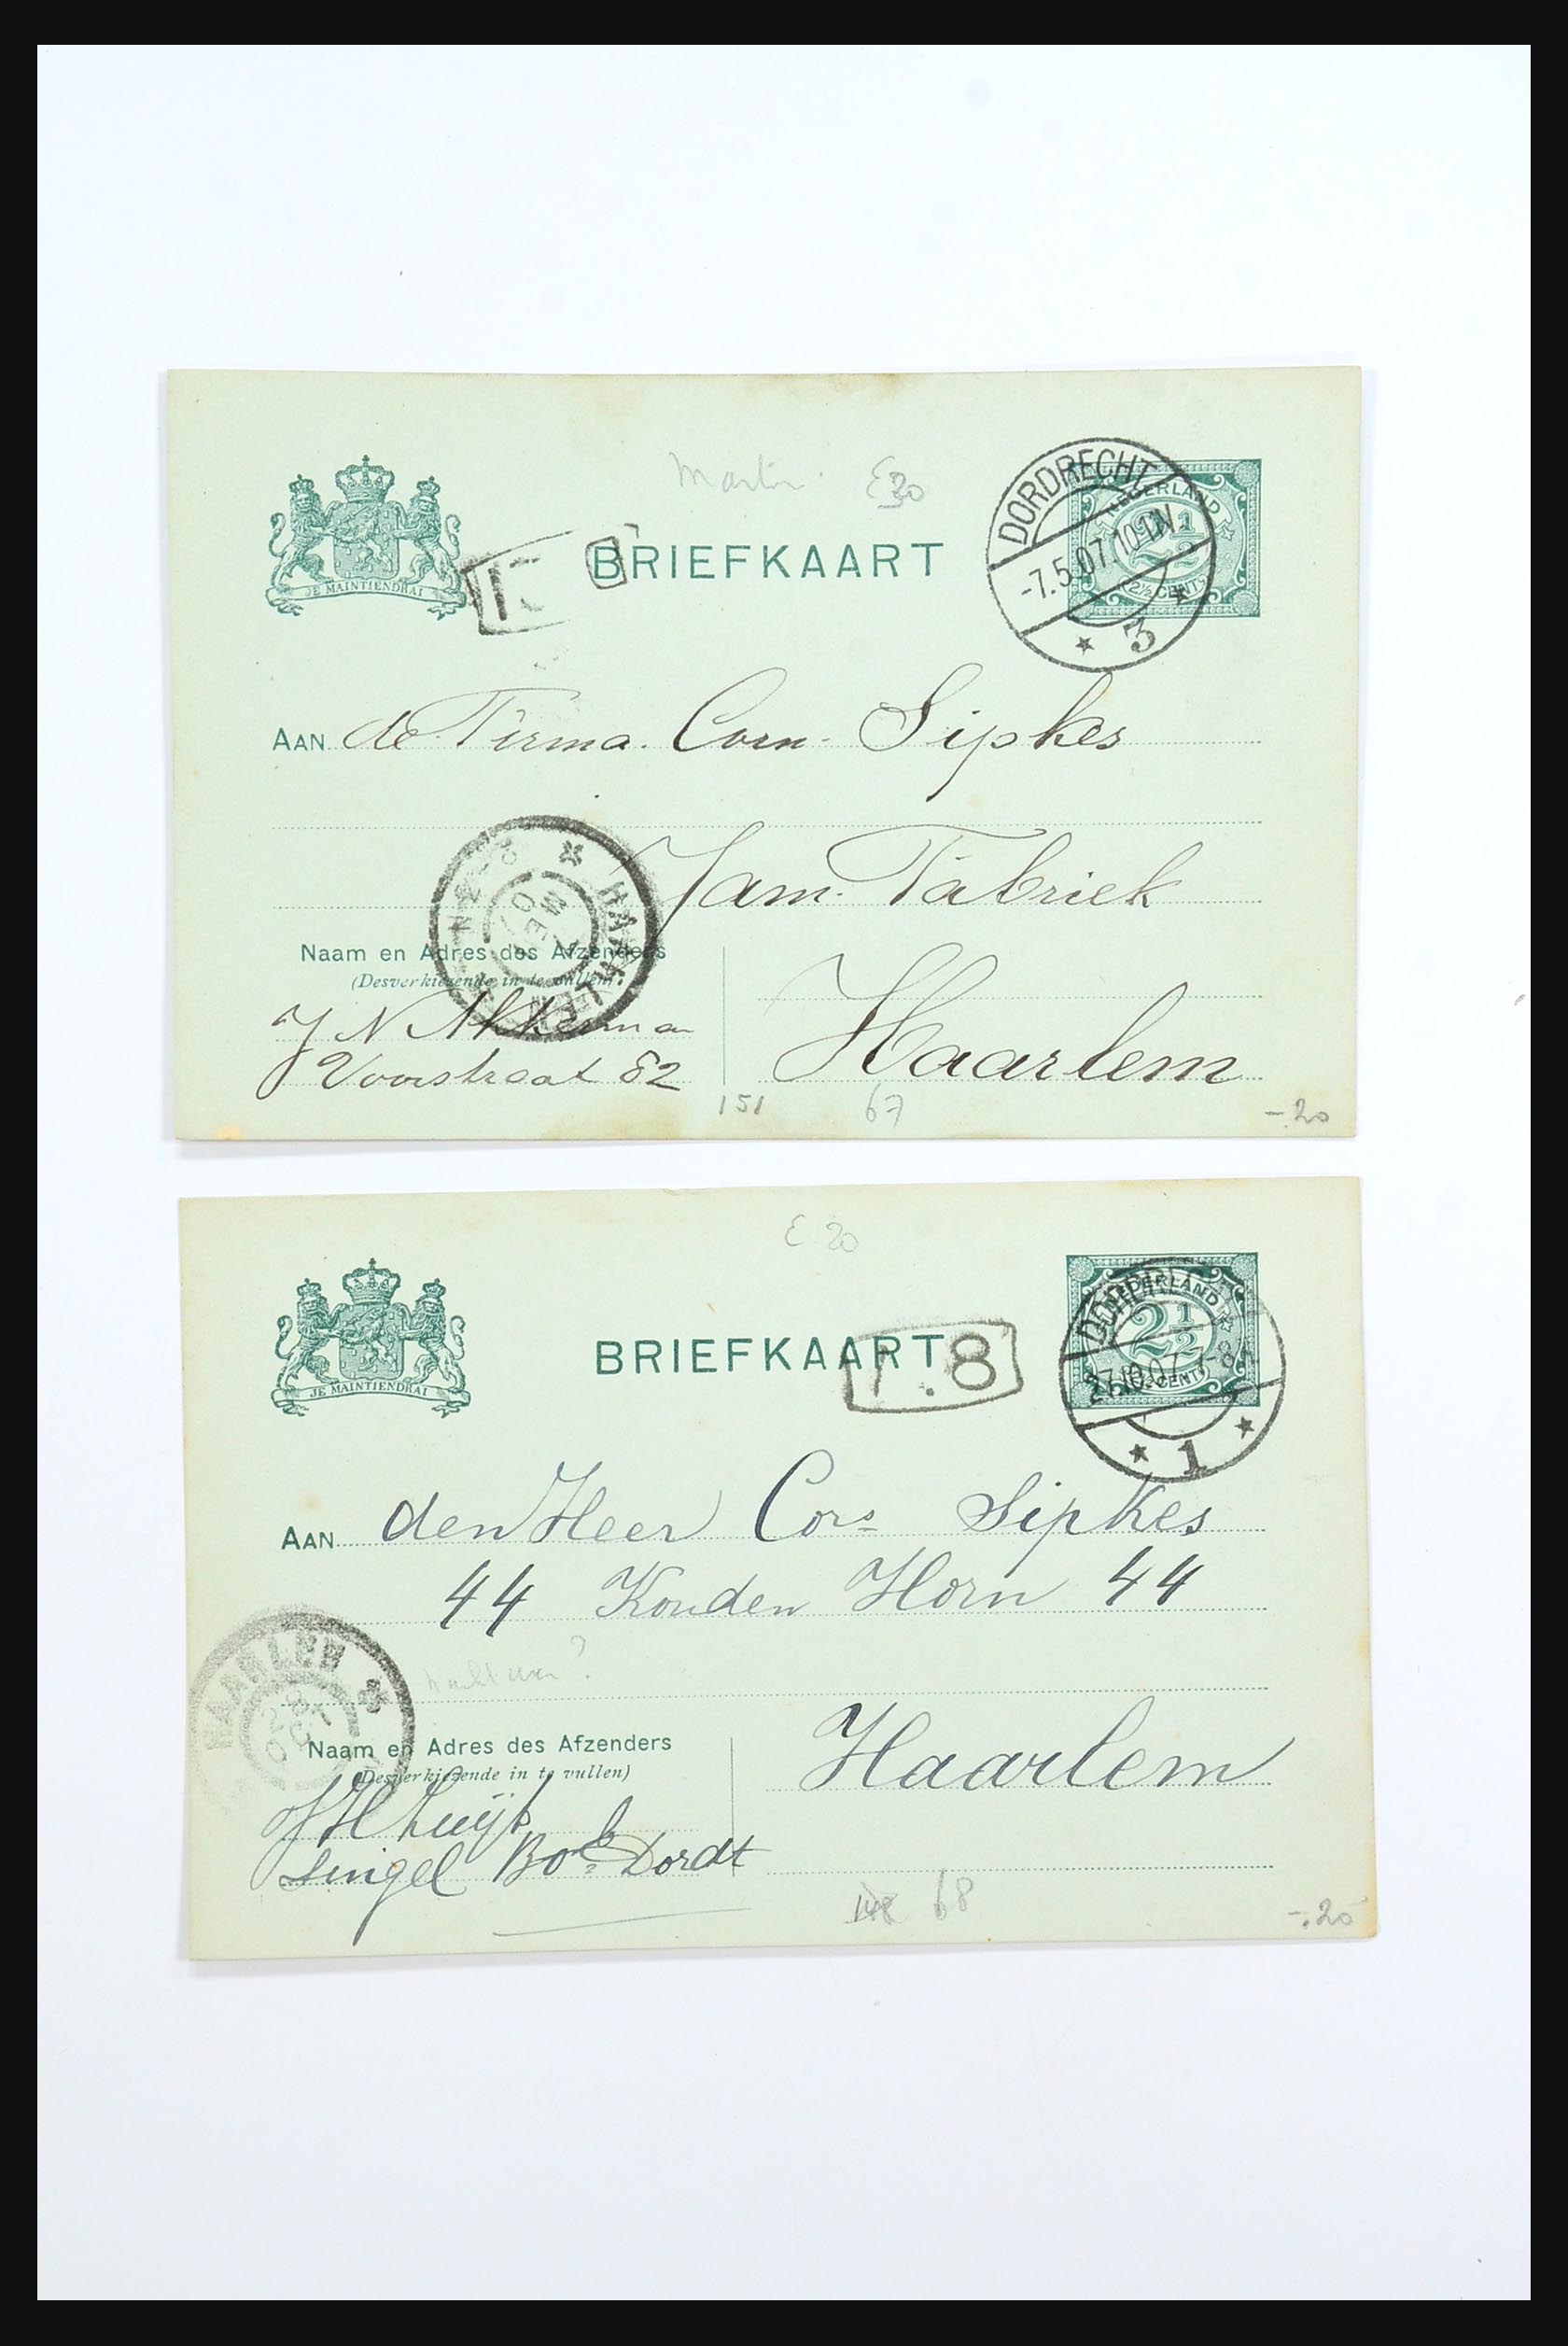 Martin. E 20
JE MAINTIENDRAI
BRIEFKAART
DORDRECHT
-7.5.07.10-11N
3
NEDERLAND
2½
2½ CENT
AAN de Firma. Corn. Sipkes
Jam. Fabriek
HAARLEM
Naam en Adres des Afzenders
(Desverkiezende in te vullen)
J N Akkerman
Voorstraat 82
Haarlem
151 67
-.20
E 20
JE MAINTIENDRAI
BRIEFKAART
8
NEDERLAND
2½
CENT
27.10.07 7-8
1
AAN den Heer Cors Sipkes
44 Kouden Horn 44
HAARLEM
28 OCT
Naam en Adres des Afzenders
(Desverkiezende in te vullen)
Singel Dordt
Haarlem
148 68
-.20